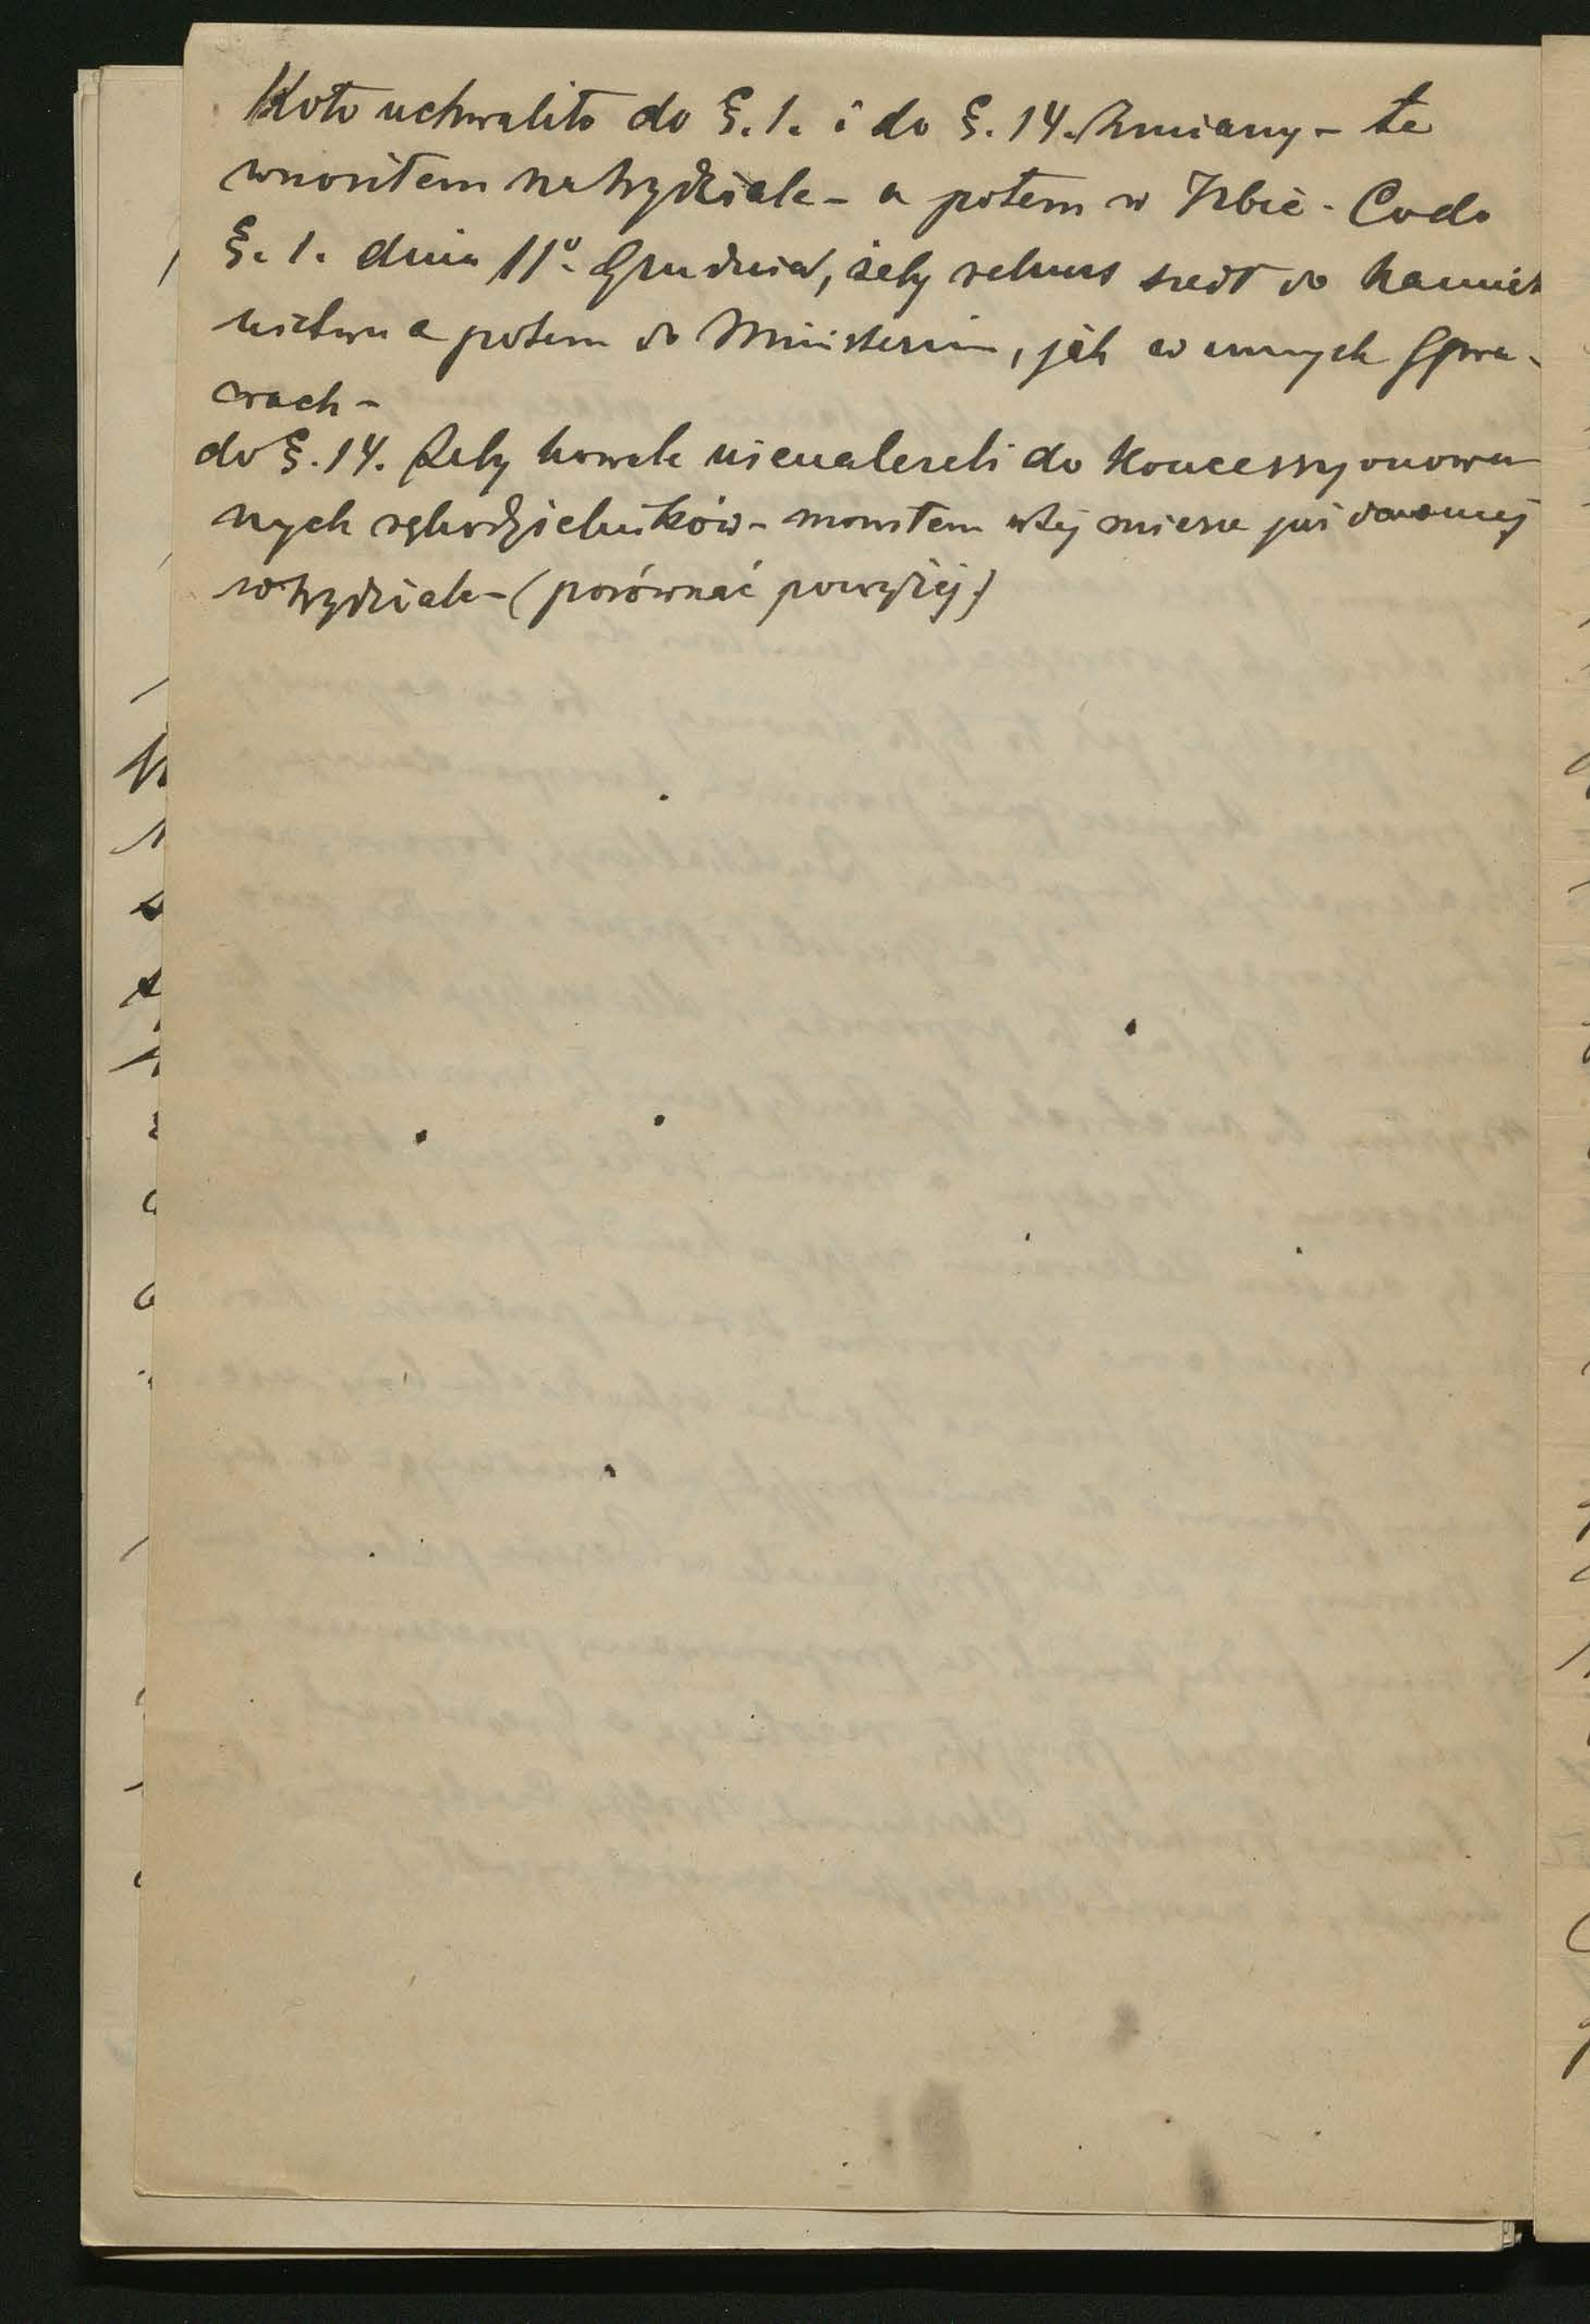 Koło uchwaliło do §. 1. i do §. 14. Zmiany – te
wnosiłem na Wydziale – a potem w Izbie – Co do
§. 1. dnia 11°. Grudnia, żeby rekurs szedł do Namiest
nictwa a potem do Ministerium, jak w innych Spra-
wach –
do §. 14. Żeby kowale nienależeli do Koncessyonowa
nych rękodzielników – mówiłem w tej mierze już dawniej
w Wydziale – (porównać powyżej)